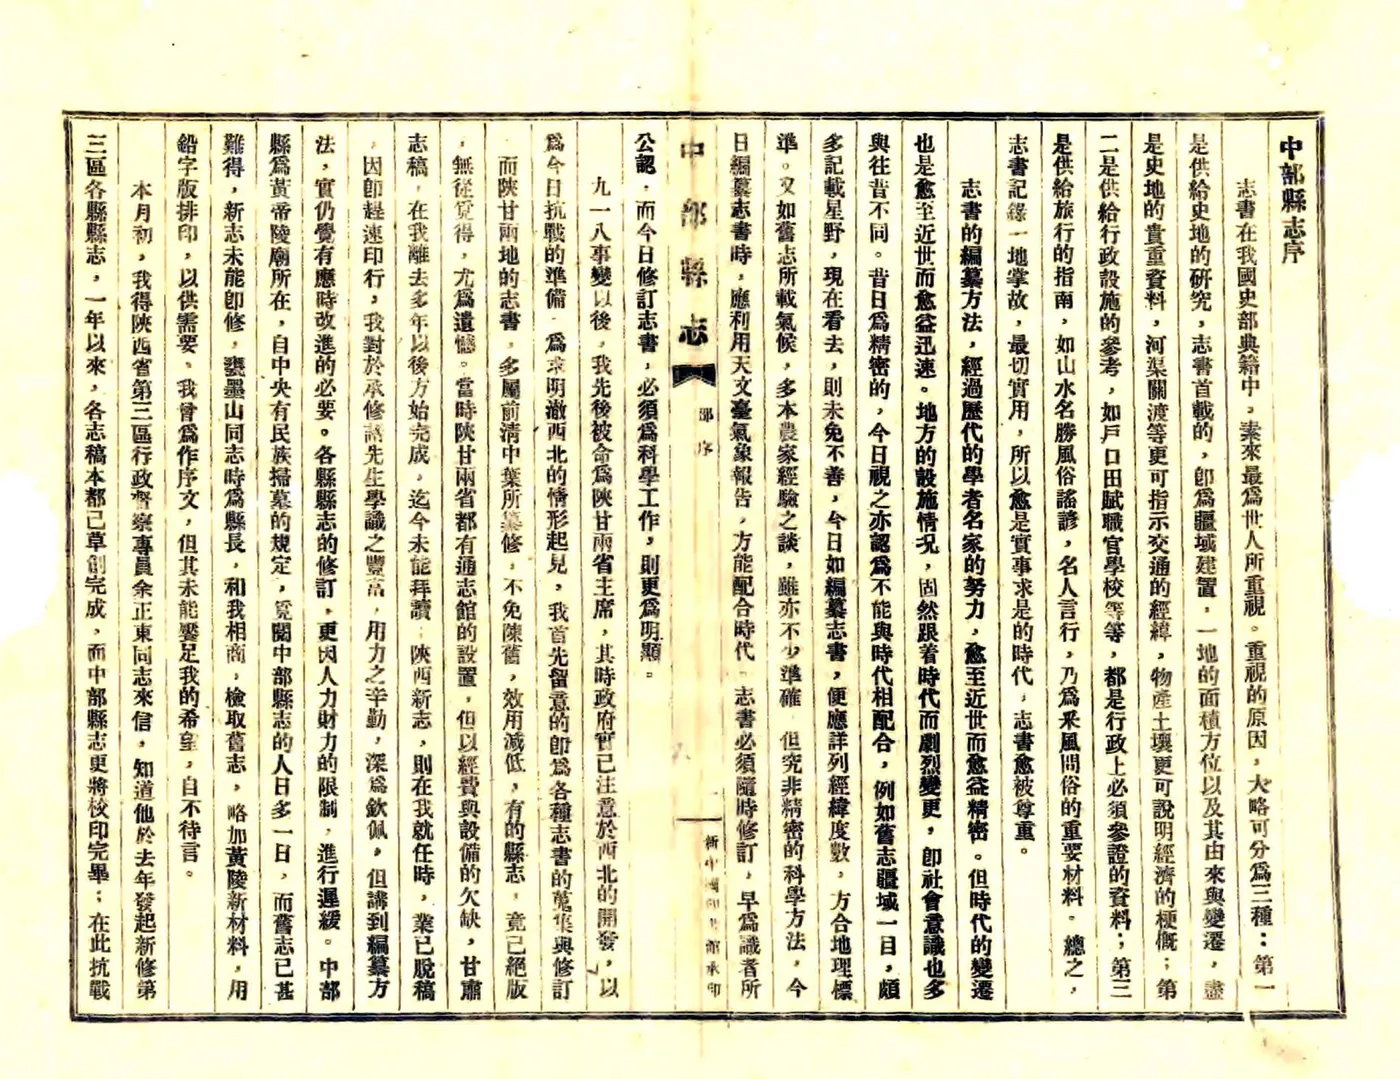 中部縣志序
志書在我國史部典籍中，素來最爲世人所重視。重視的原因，大略可分爲三種：第一
是供給史地的研究，志書首載的，卽爲疆域建置，一地的面積方位以及其由來與變遷，盡
是史地的貴重資料，河渠關渡等更可指示交通的經緯，物產土壤更可說明經濟的梗慨；第
二是供給行政設施的參考，如戶口田賦職官學校等等，都是行政上必須參證的資料；第三
是供給旅行的指南，如山水名勝風俗謠諺，名人言行，乃爲釆風問俗的重要材料。總之，
志書記錄一地掌故，最切實用，所以愈是實事求是的時代，志書愈被尊重。
志書的編纂方法，經過歷代的學者名家的努力，愈至近世而愈益精密。但時代的變遷
也是愈至近世而愈益迅速。地方的設施情况，固然跟着時代而劇烈變更，卽社會意識也多
與往昔不同。昔日爲精密的，今日視之亦認爲不能與時代相配合，例如舊志疆域一目，頗
多記載星野，現在看去，則未免不善，今日如編纂志書，便應詳列經緯度數，方合地理標
準。又如舊志所載氣候，多本農家經驗之談，雖亦不少準確　但究非精密的科學方法，今
日編纂志書時，應利用天文臺氣象報告，方能配合時代　志書必須隨時修訂，早爲識者所
中部縣志
部序
一
新中國印書館承印
公認，而今日修訂志書，必須爲科學工作，則更爲明顯。
九一八事變以後，我先後被命爲陝甘兩省主席，其時政府實已注意於西北的開發，以
爲今日抗戰的準備，爲求明澈西北的情形起見，我首先留意的卽爲各種志書的蒐集與修訂
而陝甘兩地的志書，多屬前清中葉所纂修，不免陳舊，效用減低，有的縣志，竟已絕版
，無從覓得，尤爲遺憾。當時陝甘兩省都有通志館的設置，但以經費與設備的欠缺，甘肅
志稿，在我離去多年以後方始完成，迄今未能拜讀；陝西新志，則在我就任時，業已脫稿
，因卽趕速印行，我對於承修諸先生學識之豐富，用力之辛勤，深爲欽佩，但講到編纂方
法，實仍覺有應時改進的必要。各縣縣志的修訂，更因人力財力的限制，進行遲緩。中部
縣爲黃帝陵廟所在，自中央有民族掃墓的規定，覓閱中部縣志的人日多一日，而舊志已甚
難得，新志未能卽修，龔墨山同志時爲縣長，和我相商，檢取舊志，略加黃陵新材料，用
鉛字版排印，以供需要，我曾爲作序文，但其未能饜足我的希望，自不待言。
本月初，我得陝西省第三區行政督察專員余正東同志來信，知道他於去年發起新修第
三區各縣縣志，一年以來，各志稿本都已草創完成，而中部縣志更將校印完畢；在此抗戰